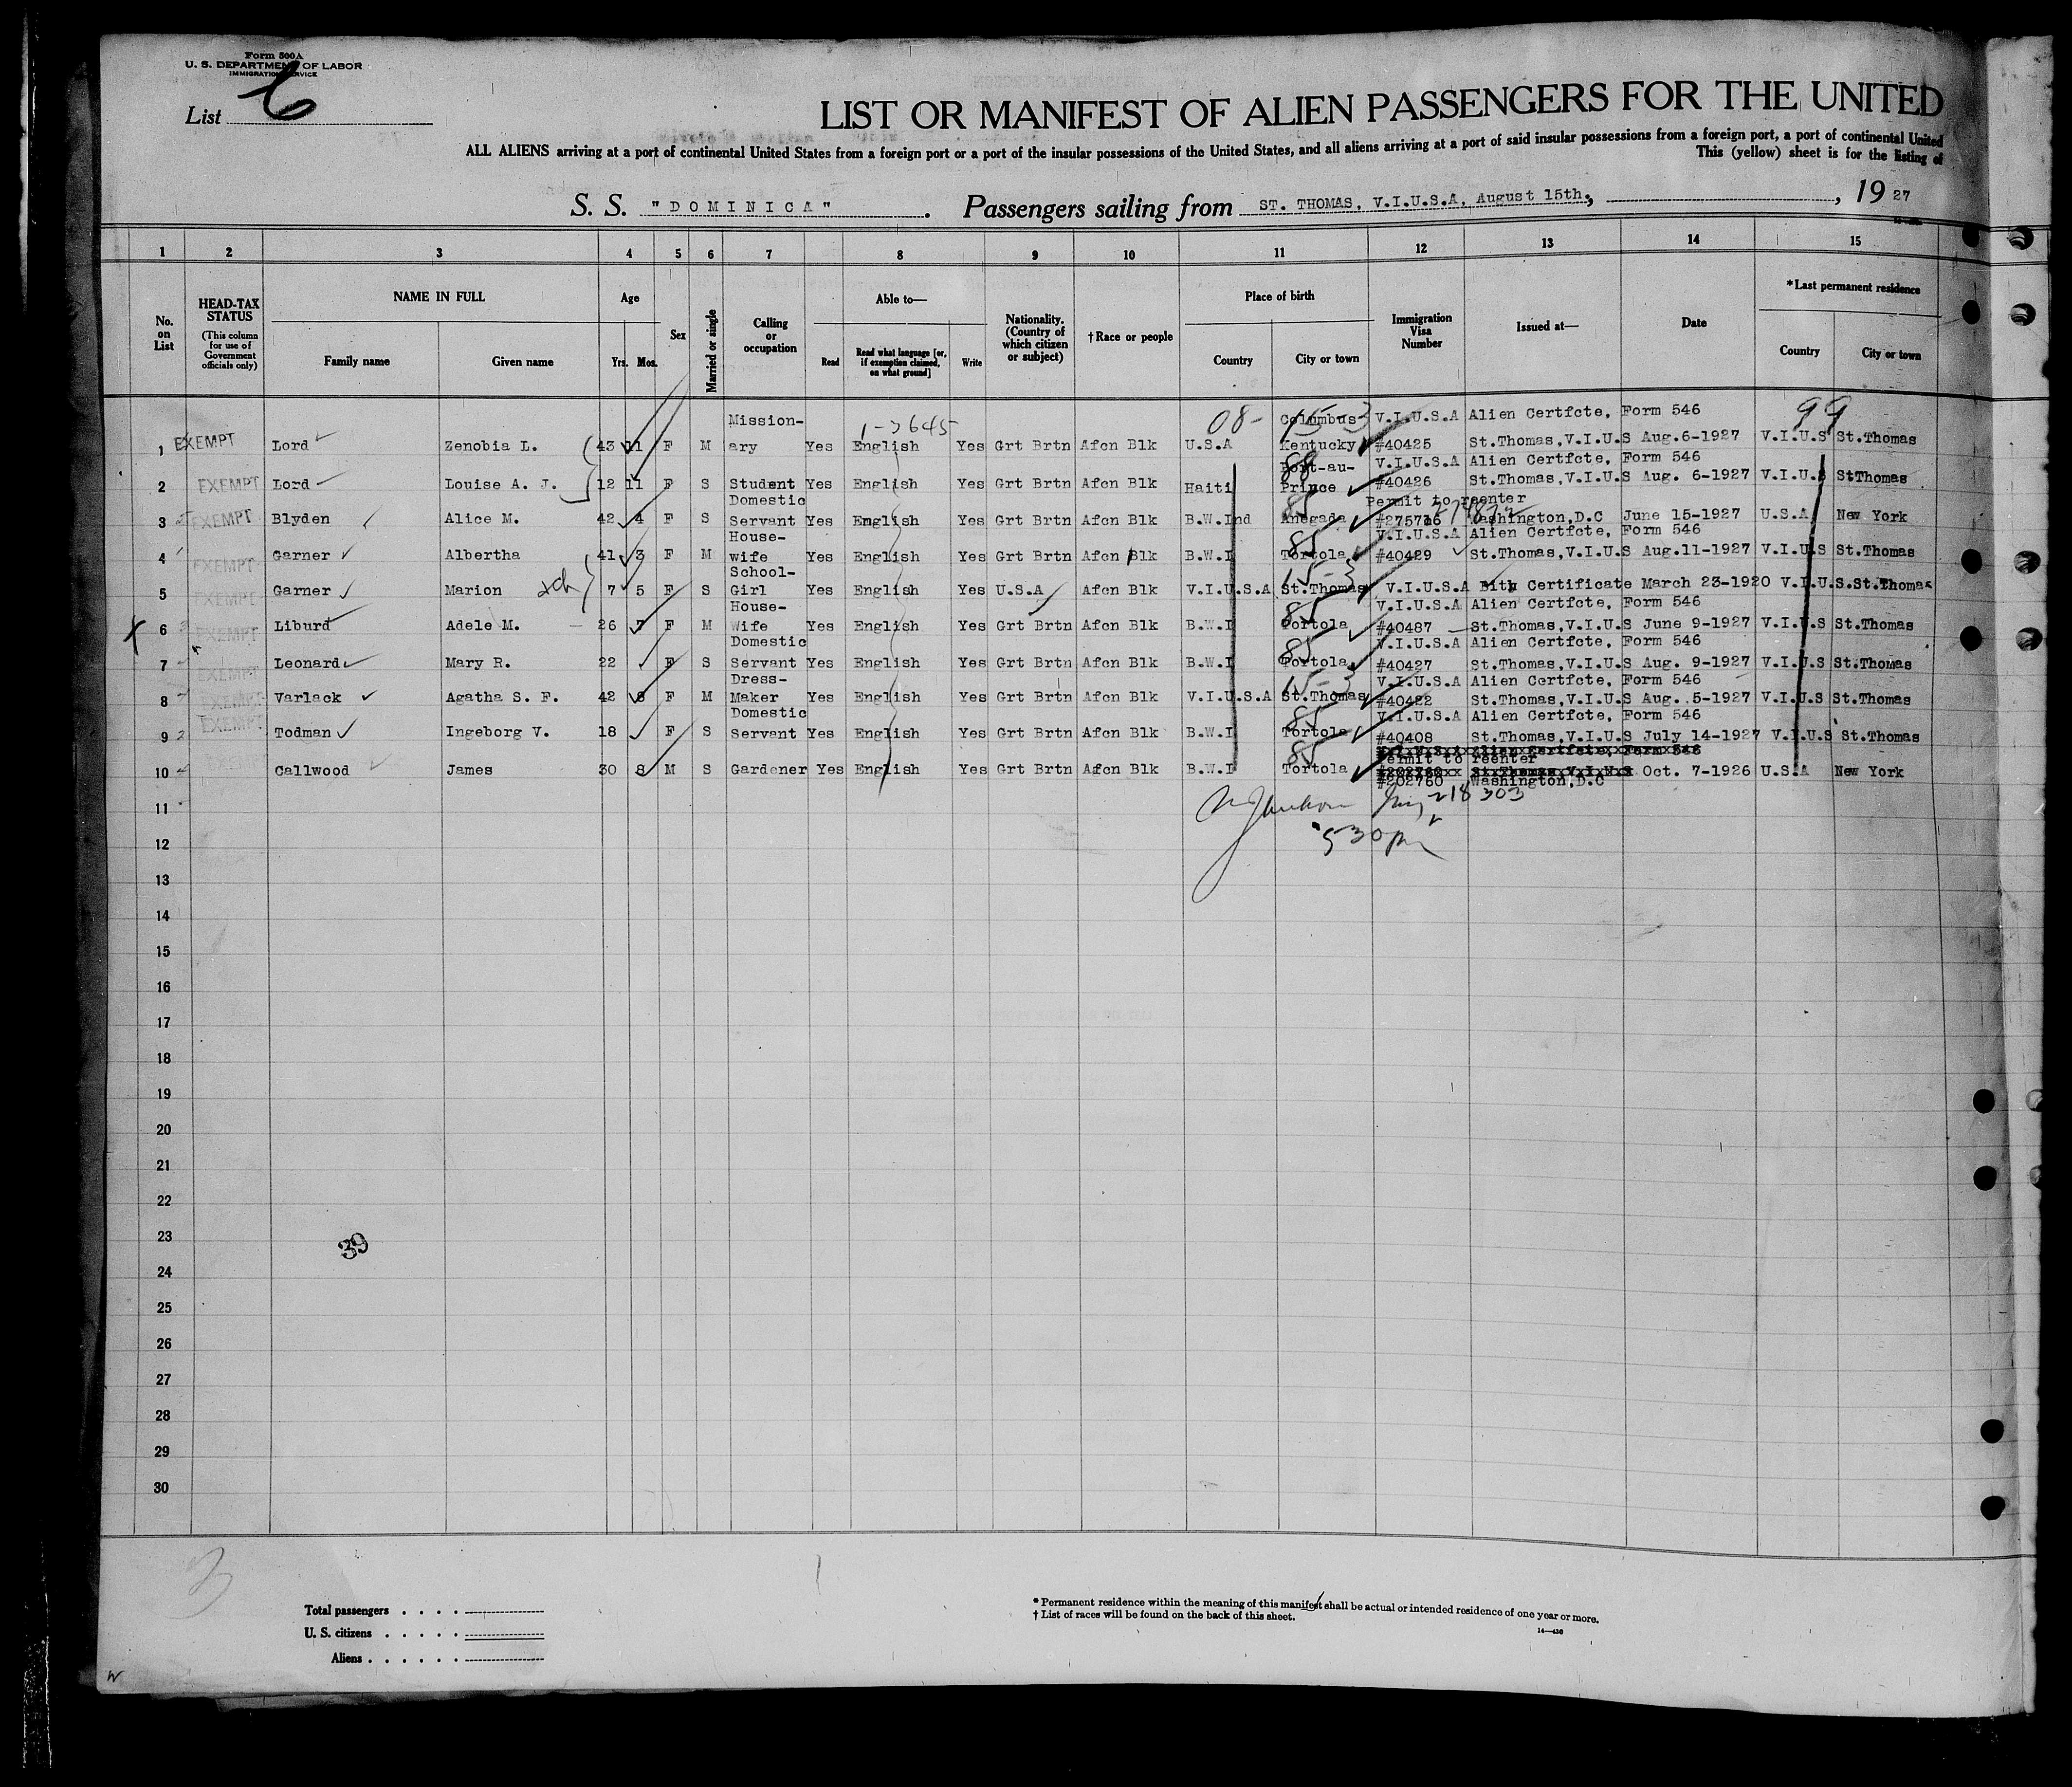 Form 500A
U. S. DEPARTMENT OF LABOR
IMMIGRATION SERVICE
List
LIST OR MANIFEST OF ALIEN PASSENGERS FOR THE UNITED
ALL ALIENS arriving at a port of continental United States from a foreign port or a port of the insular possessions of the United States, and all aliens arriving at a port of said insular possessions from a foreign port, a port of continental United
This (yellow) sheet is for the listing of
S. S. "DOMINICA". Passengers sailing from ST. THOMAS, V.I.U.S.A, August 15th, , 19 27
1 2 3 4 5 6 7 8 9 10 11 12 13 14 15
No. on List
HEAD-TAX STATUS
(This column for use of Government officials only)
NAME IN FULL
Family name Given name
Age
Yrs. Mos.
Sex
Married or single
Calling or occupation
Able to—
Read
Read what language [or, if exemption claimed, on what ground]
Write
Nationality. (Country of which citizen or subject)
†Race or people
Place of birth
Country City or town
Immigration Visa Number
Issued at—
Date
*Last permanent residence
Country City or town
Mission- 1-3645 08- 15-3 Columbus V.I.U.S.A Alien Certfcte, Form 546 99
1 EXEMPT Lord Zenobia L. 43 11 F M ary Yes English Yes Grt Brtn Afcn Blk U.S.A Kentucky #40425 St.Thomas,V.I.U.S Aug.6-1927 V.I.U.S St.Thomas
88 Port-au- V.I.U.S.A Alien Certfcte, Form 546
2 EXEMPT Lord Louise A. J. 12 11 F S Student Yes English Yes Grt Brtn Afcn Blk Haiti Prince #40426 St.Thomas,V.I.U.S Aug. 6-1927 V.I.U.S StThomas
Domestic 85 Permit to reenter
3 EXEMPT Blyden Alice M. 42 4 F S Servant Yes English Yes Grt Brtn Afcn Blk B.W.Ind Anegada #275716 Washington,D.C June 15-1927 U.S.A New York
House- 85 V.I.U.S.A Alien Certfcte, Form 546
4 EXEMPT Garner Albertha 41 3 F M wife Yes English Yes Grt Brtn Afcn Blk B.W.I Tortola #40429 St.Thomas,V.I.U.S Aug.11-1927 V.I.U.S St.Thomas
School- 15-3
5 EXEMPT Garner Marion 7 5 F S Girl Yes English Yes U.S.A Afcn Blk V.I.U.S.A St.Thomas V.I.U.S.A Bith Certificate March 23-1920 V.I.U.S.St.Thomas
House- 85 V.I.U.S.A Alien Certfcte, Form 546
X 6 EXEMPT Liburd Adele M. 26 7 F M Wife Yes English Yes Grt Brtn Afcn Blk B.W.I Tortola #40487 St.Thomas,V.I.U.S June 9-1927 V.I.U.S St.Thomas
Domestic 85 V.I.U.S.A Alien Certfcte, Form 546
7 EXEMPT Leonard Mary R. 22 F S Servant Yes English Yes Grt Brtn Afcn Blk B.W.I Tortola #40427 St.Thomas,V.I.U.S Aug. 9-1927 V.I.U.S St.Thomas
Dress- 15-3 V.I.U.S.A Alien Certfcte, Form 546
8 EXEMPT Varlack Agatha S. F. 42 8 F M Maker Yes English Yes Grt Brtn Afcn Blk V.I.U.S.A St.Thomas #40422 St.Thomas,V.I.U.S Aug. 5-1927 V.I.U.S St.Thomas
Domestic 85 V.I.U.S.A Alien Certfcte, Form 546
9 EXEMPT Todman Ingeborg V. 18 F S Servant Yes English Yes Grt Brtn Afcn Blk B.W.I Tortola #40408 St.Thomas,V.I.U.S July 14-1927 V.I.U.S St.Thomas
85 Permit to reenter
10 Callwood James 30 8 M S Gardener Yes English Yes Grt Brtn Afcn Blk B.W.I Tortola Oct. 7-1926 U.S.A New York
#202760 Washington,D.C
11 218303
12 530pm
13
14
15
16
17
18
19
20
21
22
23 39
24
25
26
27
28
29
30
Total passengers
U. S. citizens
Aliens
* Permanent residence within the meaning of this manifest shall be actual or intended residence of one year or more.
† List of races will be found on the back of this sheet.
14—430